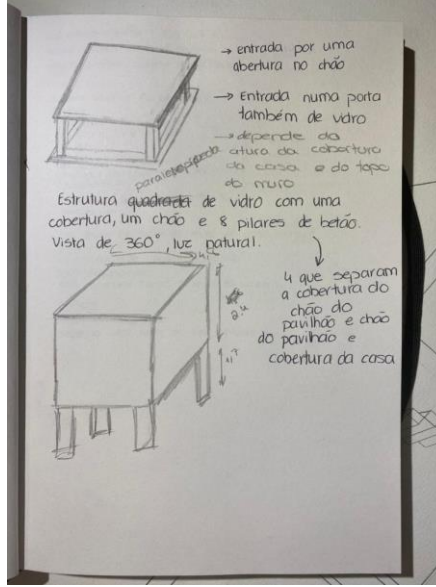 → entrada por uma
abertura no chão
→ Entrada numa porta
também de vidro
→ depende da
altura da cobertura
da casa e do topo
do muro
paralelepípeda
Estrutura quadrada de vidro com uma
cobertura, um chão e 8 pilares de betão.
Vista de 360°, luz natural.
4 que separam
a cobertura do
chão do
pavilhão e chão
do pavilhão e
cobertura da casa
2.4